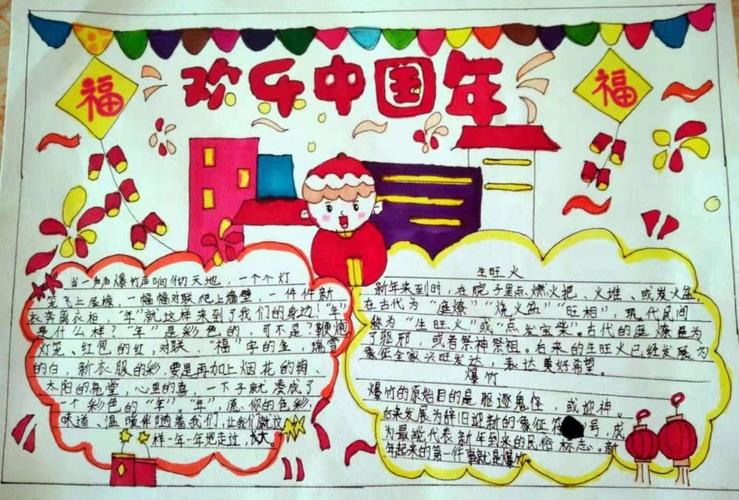 欢乐中国年
福
福
当一声声爆竹声响彻天地，一个个灯
笼飞上屋檐，一幅幅对联爬上墙壁，一件件新
衣奔离衣柜，"年"就这样来到了我们的身边！"年"
是什么样？"年"是彩色的，可不是？鞭炮
灯笼、红包的红，对联、"福"字的金，瑞雪
的白，新衣服的彩，要是再加上烟花的绚、
太阳的亮堂，心里的喜，一下子就凑成了
一个彩色的"年"。"年"，愿你的色彩、
味道、温暖伴随着我们，让我们就这
样一年一年地走过，
生旺火
新年来到时，在院子里点燃火把、火堆、或炭火盆，
在古代为"庭燎""烧火盆""旺相"，现代民间
称为"生旺火"或"点发宝柴"。古代的庭燎是为
了驱邪，或者祭神祭祖。后来的生旺火已经发展为
象征全家兴旺发达，表达美好希望。
爆竹
爆竹的原始目的是驱逐鬼怪，或迎神。
后来发展为辞旧迎新的象征符号，成
为最能代表新年到来的民俗标志。新
年起来的第一件事就是爆竹。